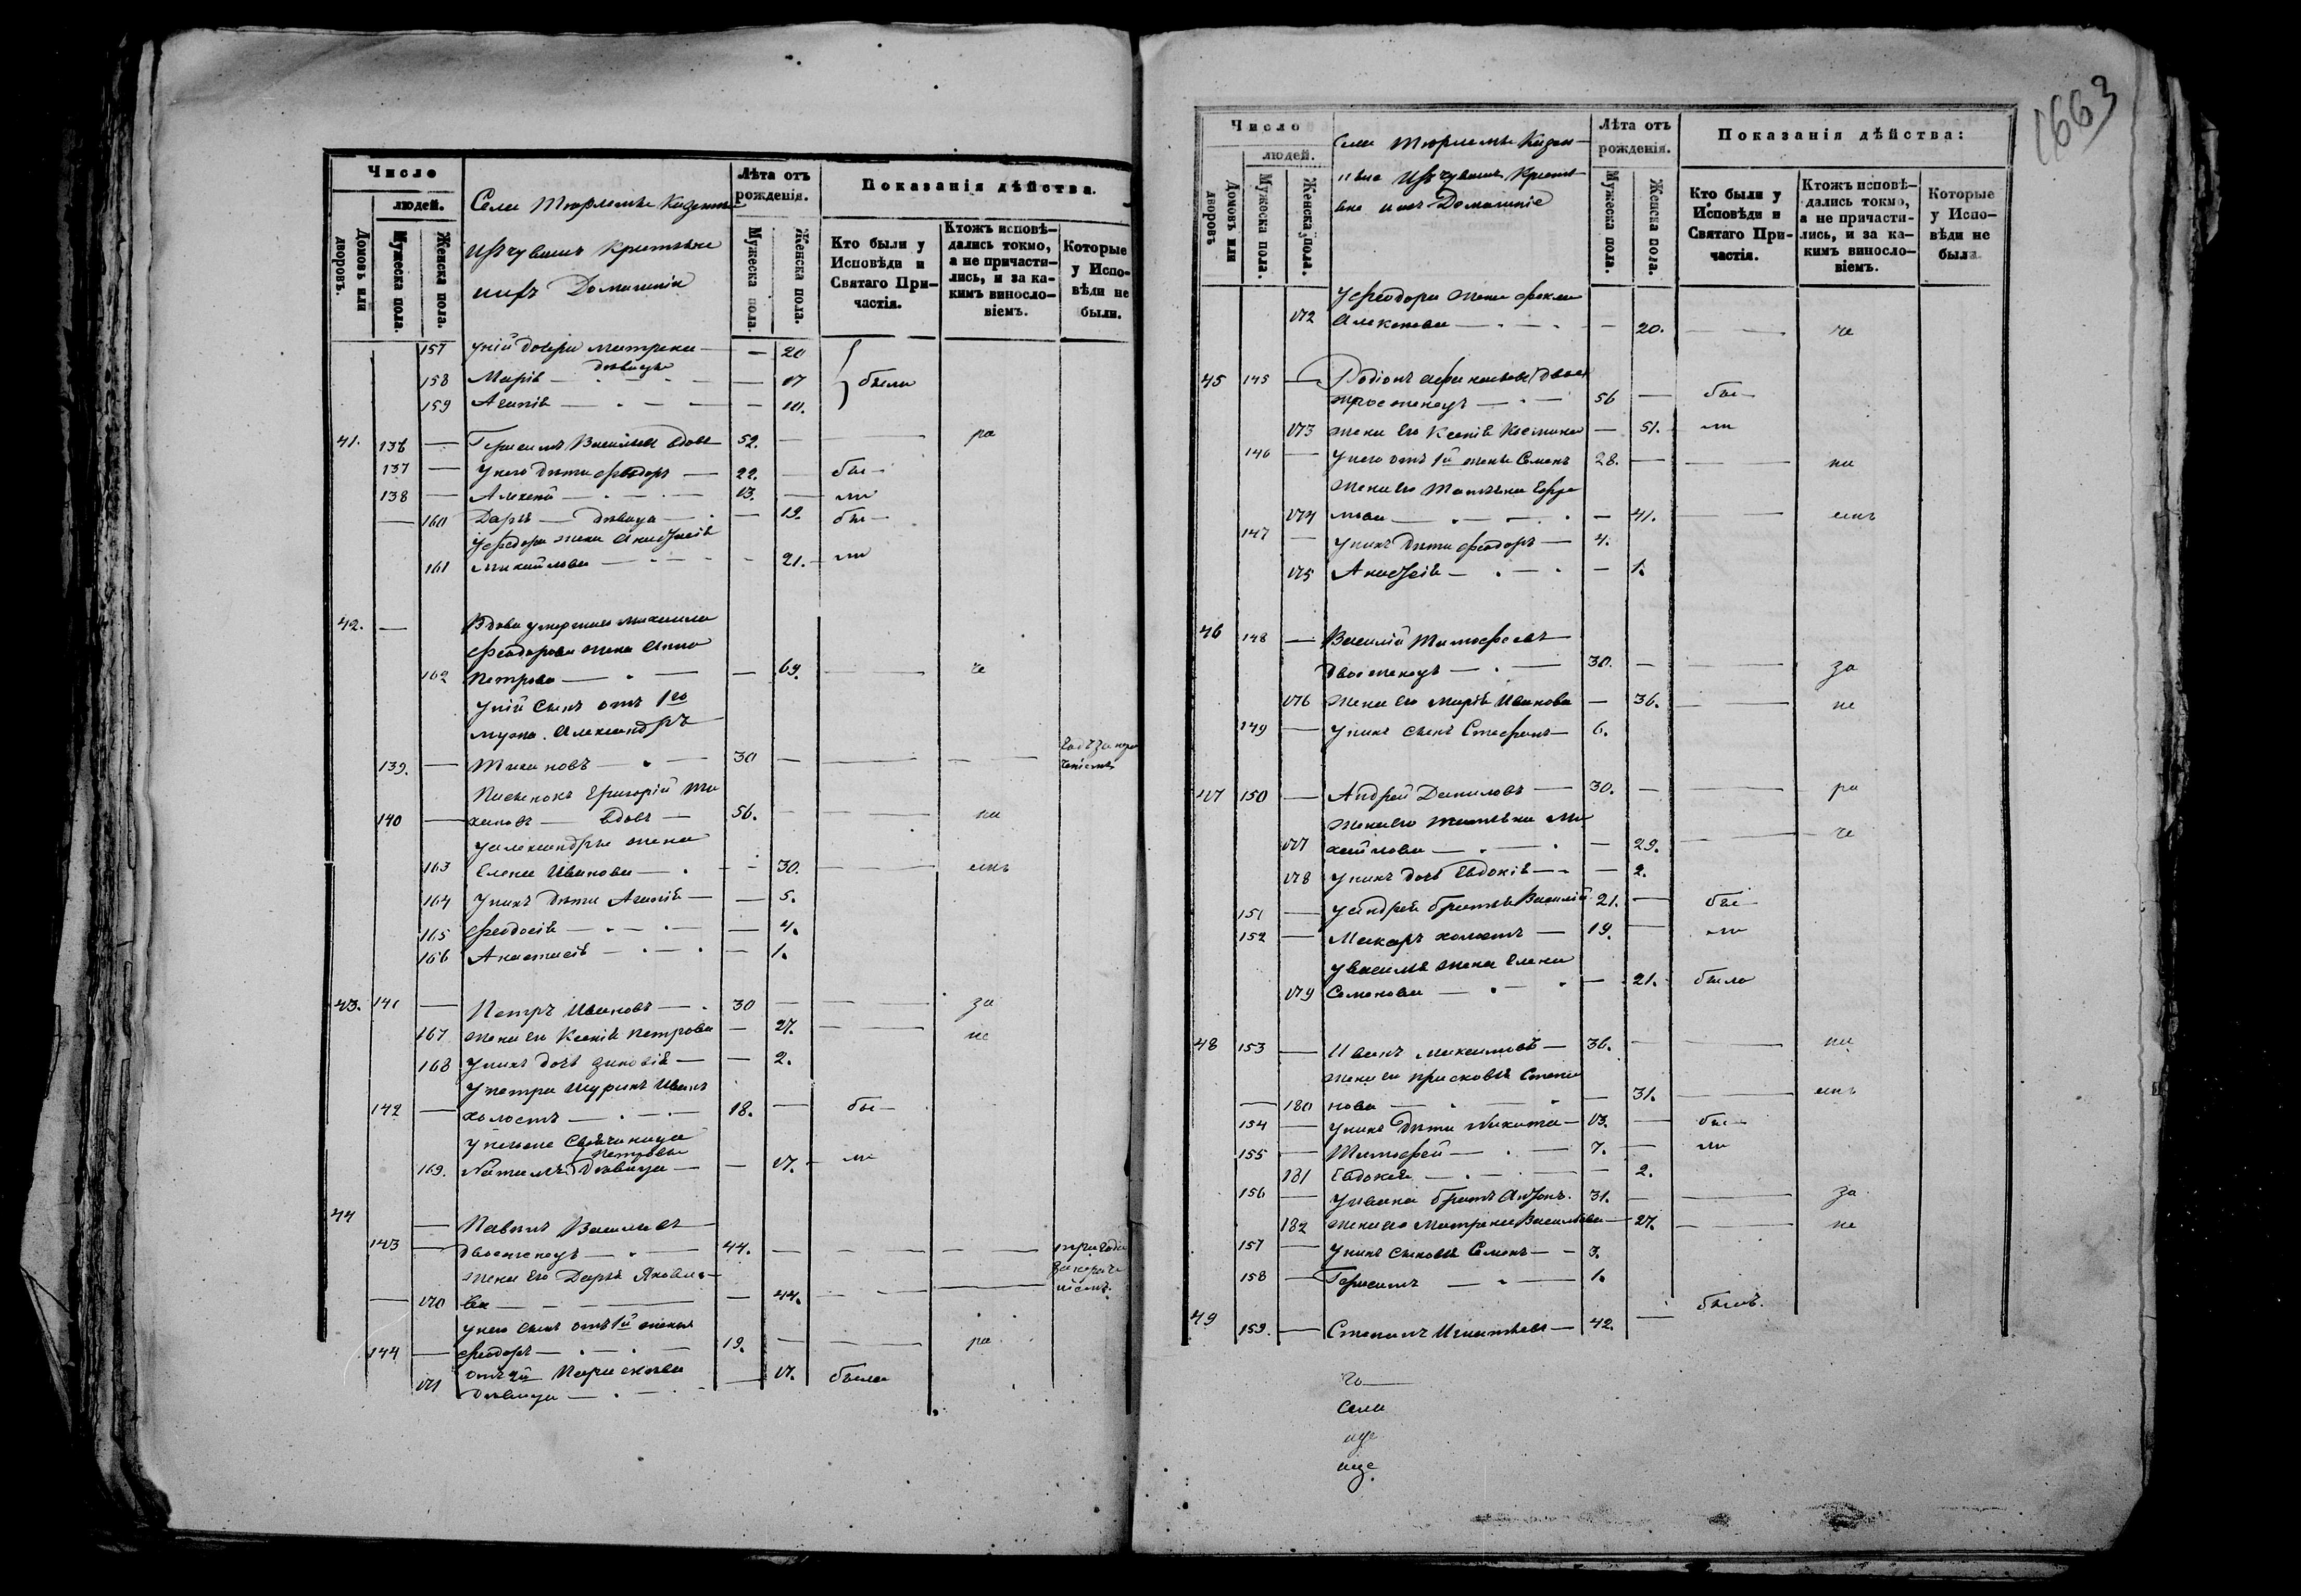 Число
людей.
Домовъ или дворовъ.
Мужеска пола.
Женска пола.
Села Тюрлемы Казенные
Изъ чувашъ крестьяне
ихъ Домашніе
Лѣта отъ рожденія.
Мужеска пола.
Женска пола.
Показанія дѣйства.
Кто были у Исповѣди и Святаго При-частія.
Ктожъ исповѣ-дались токмо, а не причасти-лись, и за ка-кимъ винословіемъ.
Которые у Испо-вѣди не были.
157 у ній дочери Матрена — 20
158 Марія — дѣвицы — 17 были
159 Агапія — 10.
41. 136 — Герасимъ Васильевъ вдовъ 52. — ра
137 — У него дѣти Феодоръ — 22. — бы-
138 — Алексѣй — 13. — ли
— 160 Дарья — дѣвица — 19. бы-
У Феодора жена Анисья
161 Михайлова — 21. — ли
42. — Вдова умершаго Михаила
Феодорова жена Анна
162 Петрова — 69. — че
У ній сынъ отъ 1го
мужа Александръ
139. — Тихановъ — 30 —
Григорій Ти
140 — хановъ — вдовъ — 56. — ни
У Александра жена
163 Елена Иванова — 30. — емъ
164 У нихъ дѣти Агапія — 5.
165 Феодосія — 4.
166 Анастасія — 1.
43. 141 — Петръ Ивановъ — 30 — за
167 жена его Ксенія Петрова — 27. — не
168 У нихъ дочь Зиновія — 2.
У Петра шуринъ Иванъ
142 — холостъ — 18. — бы-
Петровы
169. дѣвица — 17. — ли
44
— Павелъ Васильевъ
143 — двоеженецъ — 44. —
жена его Дарья Яковле-
— 170 ва — 44. —
У него сынъ отъ 1й жены
144 — Феодоръ — 19. — ра
отъ 2й Парасковья
171 дѣвица — 17. была
1663
Число
людей.
Домовъ или дворовъ
Мужеска пола.
Женска пола.
Села Тюрлемы Казен-
ные Изъ чувашъ Кресть-
яне и ихъ Домашніе
Лѣта отъ рожденія.
Мужеска пола.
Женска пола.
Показанія дѣйства:
Кто были у Исповѣди и Святаго При-частія.
Ктожъ исповѣ-дались токмо, а не причасти-лись, и за ка-кимъ винословіемъ.
Которые у Испо-вѣди не были
У Феодора жена Фекла
172 Алексѣева — 20. — че
45 145 — Родіонъ Афанасьевъ
троеженецъ — 56 — бы-
173 жена его Ксенія Косьмина — 51. — ли
146 — У него отъ 1й жены Семенъ 28. — ни
жена его Татьяна Ефре
174 мова — 41. — емъ
147 — У нихъ дѣти Феодоръ — 4.
175 Анисья — 1.
46 148 — Василій Тимофеевъ
двоеженецъ — 30. — за
176 жена его Марія Иванова — 36. — не
149 — У нихъ сынъ Стефанъ — 6.
47 150 — Андрей Даниловъ — 30. — ра
жена его Татьяна Ми
177 хайлова — 29. — че
178 У нихъ дочь Евдокія — 2.
151 — У Андрея братья Василій 21. — бы-
152 — Макаръ холостъ — 19. — ли
У Василья жена Елена
179 Семенова — 21. была
48 153 — Иванъ Максимовъ — 36. — ни
жена его Прасковья Степа
— 180 нова — 31. — емъ
154 — У нихъ дѣти Никита — 13. — бы-
155 — Тимофей — 7. — ли
181 Евдокія — 2.
156 — У Ивана братъ Антонъ. 31. — за
182 жена его Матрена Васильева — 27. — не
157 — У нихъ сыновья Семенъ — 3.
158 — Герасимъ — 1.
49 159. — Степанъ Игнатьевъ — 42. — былъ.
го
Села